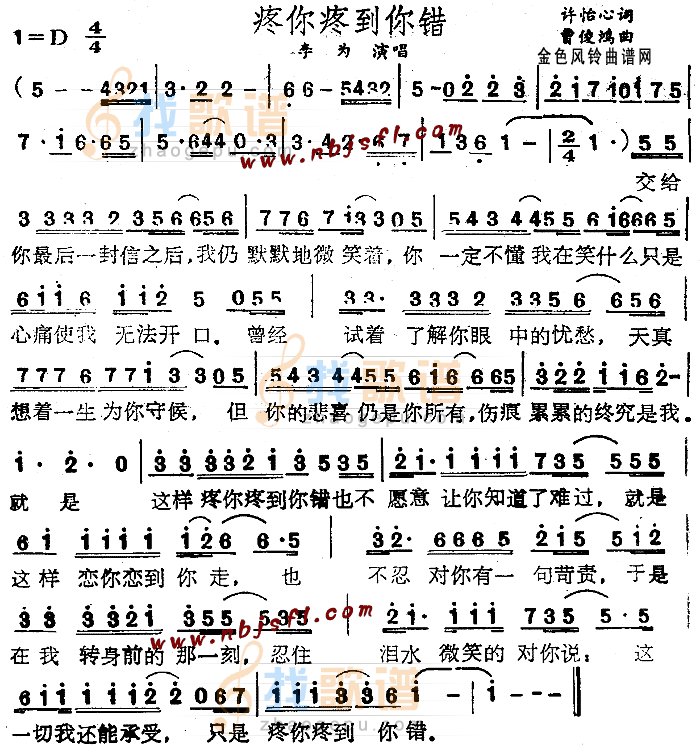 疼你疼到你错
1=D 4/4
许怡心词
曹俊鸿曲
李为 演唱
金色风铃曲谱网
(5 - - 4321 | 3· 2 2 - | 6 6 - 5432 | 5 - 0 2 2 3 | 2 1 7 1 0 1 7 5
7 · 1 6 · 65 | 5 · 644 0 3 | 3 · 4 2 3 6 7 | 1 3 6 1 - | 2/4 1 · ) 5 5
交给
3 333 2 356 656 | 776 7 133 05 | 543 4 455 6 1666 6
你最后一封信之后,我仍 默默地微笑着,你 一定不懂我在笑什么只是
6 1 1 6 1 1 2 5 0 5 5 | 3 3· 333 2 335 6 565
心痛使我 无法开口。曾经 试着 了解你眼 中的忧愁,天真
777 6 771 3 305 | 543 4 455 6 16 665 | 3 2 2 1 1 6 2 -
想着一生为你守候, 但 你的悲喜仍是你所有,伤痕 累累的终究是我。
1 · 2 · 0 | 3 3 3 3 2 1 3 5 3 5 | 2 1· 1 1 1 1 7 3 5 5 5 5
就 是 这样 疼你疼到你错也不 愿意 让你知道了难过,就是
6 1 1 1 1 1 1 2 6 6 · 5 | 3 2· 6 6 6 5 2 5 5 1 2
这样 恋你恋到你 走, 也 不忍 对你有一 句苛责,于是
3 3 3 3 2 1 3 5 5 5 3 5 | 2 1· 1 1 1 1 7 3 5 5 · 5
在我 转身前的 那一刻,忍住 泪水 微笑的 对你说: 这
6 1 1 1 1 2 2 0 6 7 | 1 1 1 3 3 6 1 - | 1 - ‖
一切我还能承受, 只是 疼你疼到 你 错。
找歌谱
zhaogepu.com
www.nbjsfl.com
找歌谱
zhaogepu.com
www.nbjsfl.com
找歌谱
zhaogepu.com